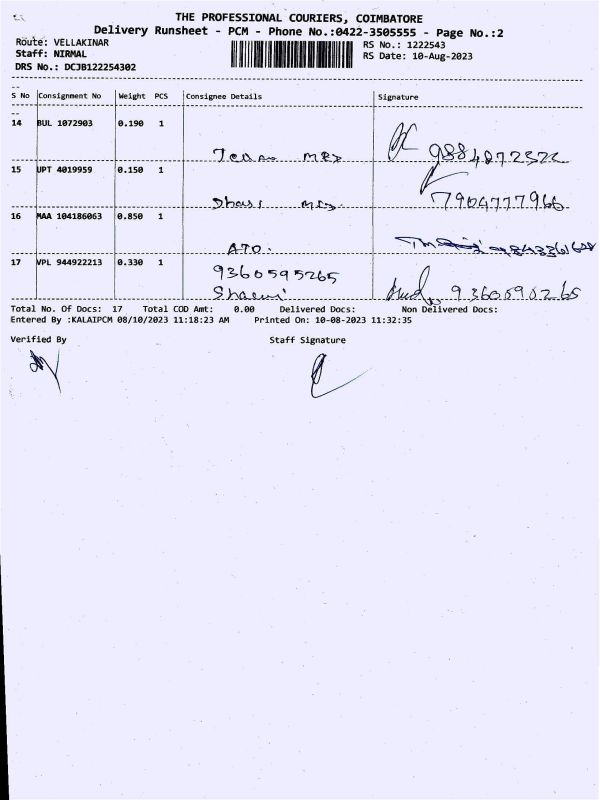 THE PROFESSIONAL COURIERS, COIMBATORE
Delivery Runsheet - PCM - Phone No.:0422-3505555 - Page No.:2
Route: VELLAKINAR
RS No.: 1222543
Staff: NIRMAL
RS Date: 10-Aug-2023
DRS No.: DCJB122254302
S No Consignment No Weight PCS Consignee Details Signature
14 BUL 1072903 0.190 1
15 UPT 4019959 0.150 1
7904777966
16 MAA 104186063 0.850 1
ATO.
17 VPL 944922213 0.330 1
9360595265
Total No. Of Docs: 17 Total COD Amt: 0.00 Delivered Docs: Non Delivered Docs:
Entered By :KALAIPCM 08/10/2023 11:18:23 AM Printed On: 10-08-2023 11:32:35
Verified By Staff Signature